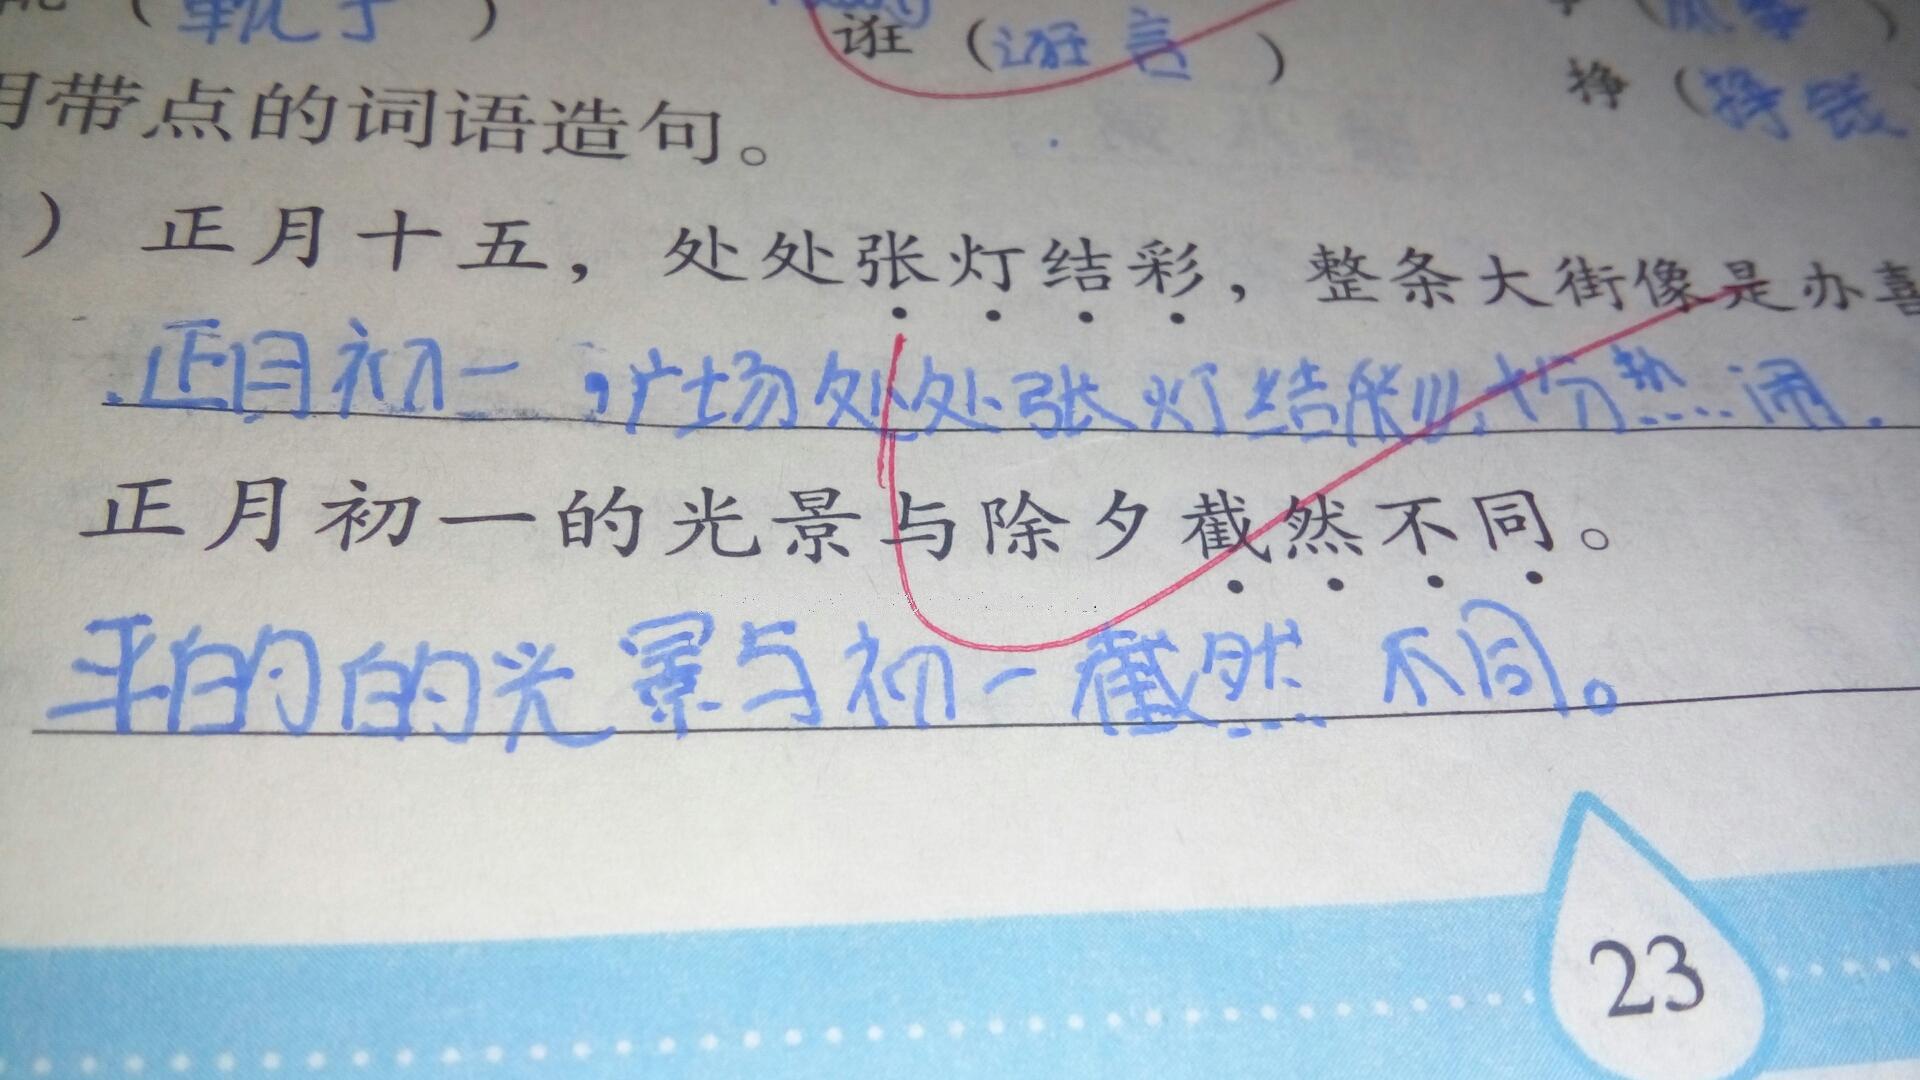 (靴子)
诳 (诳言)
挣 (挣钱
用带点的词语造句。
) 正月十五，处处张灯结彩，整条大街像是办喜
正月初一，广场处处张灯结彩，十分热闹.
正月初一的光景与除夕截然不同。
平的的光景与初一截然不同。
23